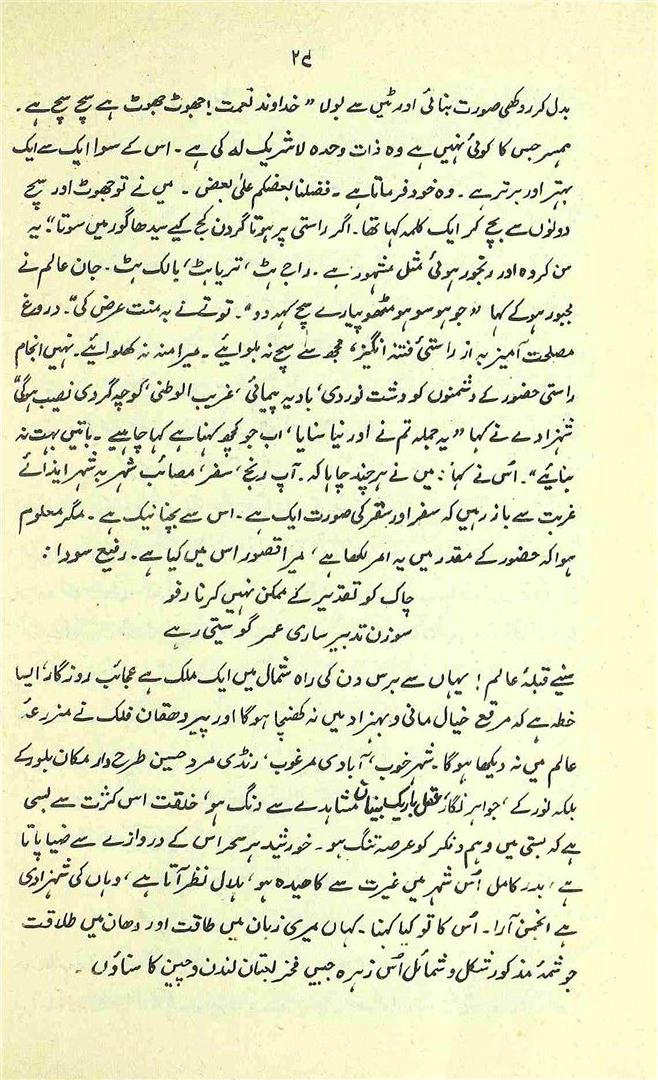 ۲۹
بدل کر روکھی صورت بنائی اور ٹیں سے بولا ” خداوند نعمت ! جھوٹ جھوٹ ہے سچ سچ ہے ۔
ہمسر جس کا کوئی نہیں ہے وہ ذات وحدہ لا شریک لہ کی ہے ۔ اس کے سوا ایک سے ایک
بہتر اور برتر ہے ۔ وہ خود فرماتا ہے ۔ فضلنا بعضکم علیٰ بعض ۔ میں نے تو جھوٹ اور سچ
دونوں سے بچ کر ایک کلمہ کہا تھا ۔ اگر راستی پر ہوتا گردن کج کیے سیدھا گور میں سوتا ‘‘۔ یہ
سن کر وہ اور رنجور ہوئی مثل مشہور ہے ۔ راج ہٹ ، تریا ہٹ ، بالک ہٹ ۔ جان عالم نے
مجبور ہو کے کہا ’’ جو ہو سو ہو مٹھو پیارے سچ کہہ دو ‘‘۔ توتے نے بہ منت عرض کی ’’۔ دروغ
مصلحت آمیز بہ از راستیٔ فتنہ انگیز ، مجھ سے سچ نہ بلوائیے ۔ میرا منہ نہ کھلوائیے ۔ نہیں انجام
راستی حضور کے دشمنوں کو دشت نوردی ، بادیہ پیمائی ، غریب الوطنی ، کوچہ گردی نصیب ہوگی ‘‘
شہزادے نے کہا ’’ یہ جملہ تم نے اور نیا سنایا ، اب جو کچھ کہنا ہے کہا چاہیے ۔ باتیں بہت نہ
بنائیے ‘‘۔ اُس نے کہا : میں نے ہر چند چاہا کہ ۔ آپ رنج ، سفر ، مصائب شہر بہ شہر ایذائے
غربت سے باز رہیں کہ سفر اور سقر کی صورت ایک ہے ۔ اس سے بچنا نیک ہے ۔ مگر معلوم
ہوا کہ حضور کے مقدر میں یہ امر لکھا ہے ، میرا قصور اس میں کیا ہے ۔ رفیع سودا :
چاک کو تقدیر کے ممکن نہیں کرنا رفو
سوزن تدبیر ساری عمر گو سیتی رہے
سنیے قبلۂ عالم ! یہاں سے برس دن کی راہ شمال میں ایک ملک ہے عجائب روزگار ، ایسا
خطہ ہے کہ مرقع خیال مانی و بہزاد میں نہ کھنچا ہوگا اور پیر دھقان فلک نے مزرعۂ
عالم میں نہ دیکھا ہوگا ۔ شہر خوب ، آبادی مرغوب ، رنڈی مرد حسین طرح دار مکان بلور کے
بلکہ نور کے ، جواہر نگار ، عقل باریک بینان مشاہدے سے دنگ ہو ، خلقت اس کثرت سے بسی
ہے کہ بستی میں وہم و فکر کو عرصہ تنگ ہو ۔ خورشید ہر سحر اس کے دروازے سے ضیا پاتا
ہے ، بدر کامل اُس شہر میں غیرت سے کاھیدہ ہو ، ہلال نظر آتا ہے ، وہاں کی شہزادی
ہے انجمن آرا ۔ اُس کا تو کیا کہنا ۔ کہاں میری زبان میں طاقت اور دھان میں طلاقت
جو شمۂ مذکور شکل و شمائل اُس زہرہ جبیں فخر لعبتان لندن و چین کا سناؤں ۔